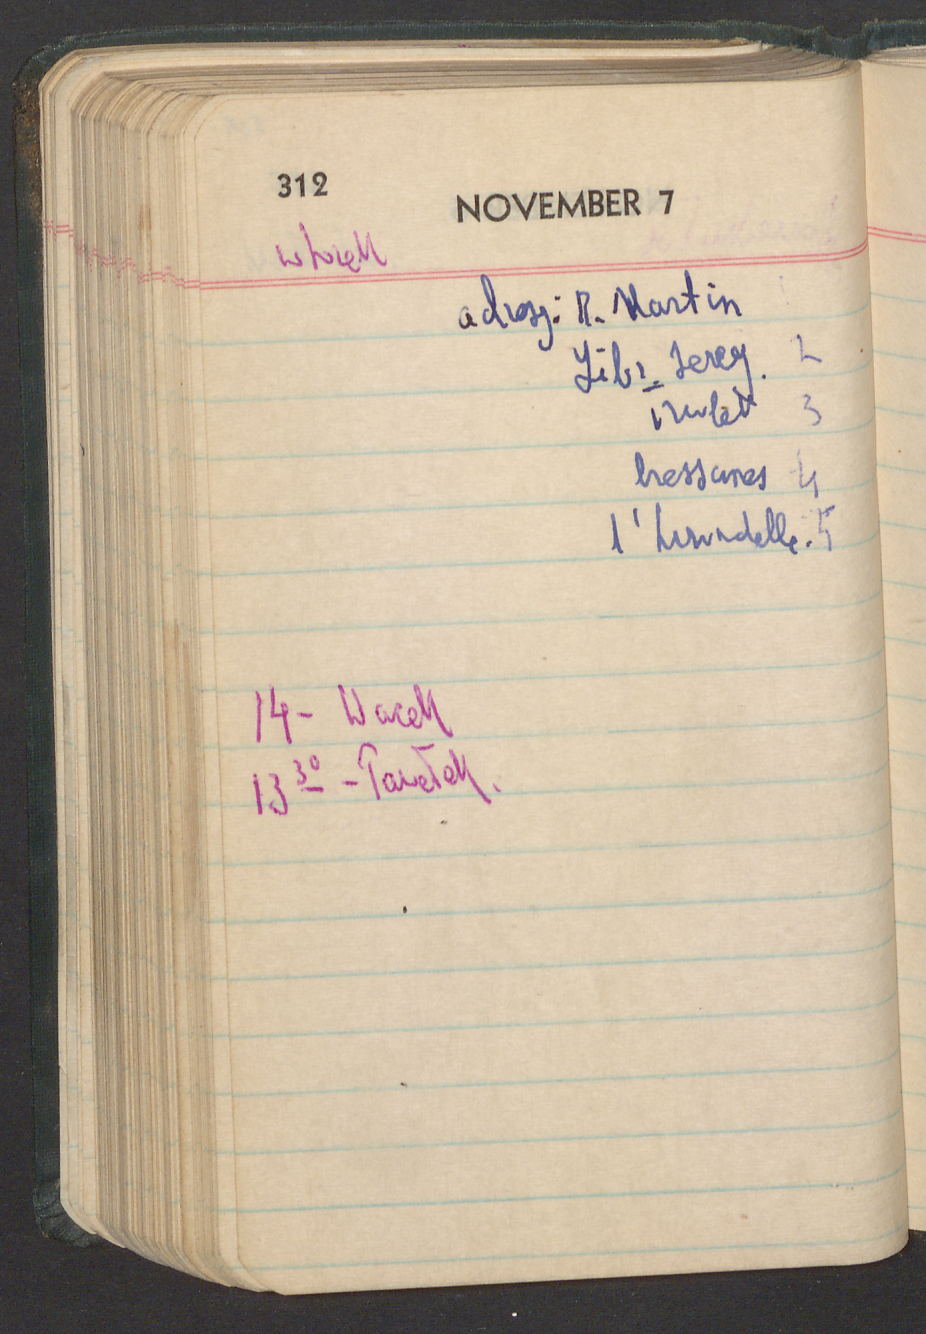 312
NOVEMBER 7
wtorek
adresy: R. Martin
Libr. 2
3
bressanes 4
l'hirondelle. 5
14 - Wacek
13 30 - Pawełek.